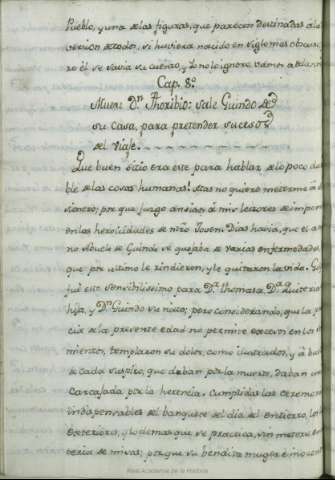 Pueblo, y una de las figuras, que parecen destinadas a la
version de todos, si huviera nacido en siglo mas obscu
ro él se savia su cuento, y Yo no lo ignoro. Vamos a
Cap. 8.º
Muere D.ⁿ Thoribio: sale Guindo de
su casa, para pretender
el viaje.
Que buen sitio era este para hablar de lo poco dura
ble de las cosas humanas! Mas no quiero meterme á
sionero; por que juzgo ansiosos á mis lectores de impon
en las heroicidades de nrõ Joven. Dias havia, que el an
no Abuelo de Guindo se quejaba de varias enfermedades
que por ultimo le rindieron, y le quitaron la vida.
fué este sensibilisimo para D.ª Thomasa, D.ª Quiteria
hija, y D.ⁿ Guindo su nieto; pero considerando, que la
cia de la presente edad no permite excesos en los
mientos, templaron su dolor, como ilustrados, y á bu
de cada suspiro, que daban por la muerte, daban un
carcajada por la herencia. Cumplidas las ceremon
indispensables del banquete del dia del entierro,
exteriores, y lo demas que se practica, sin meterse
teria de misas; porque su bendita muger é
Real Academia de la Historia